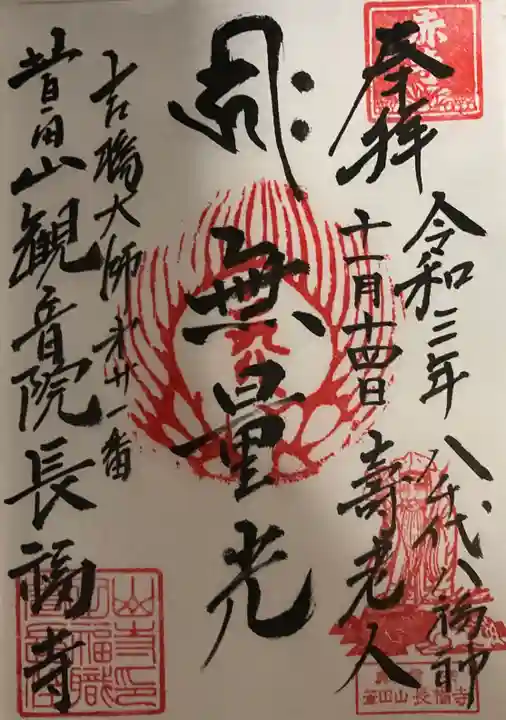 奉拝
令和三年
十一月十四日
八千代八福神
壽老人
無量光
吉橋大師第廿一番
萱田山観音院長福寺
萱田山長福寺